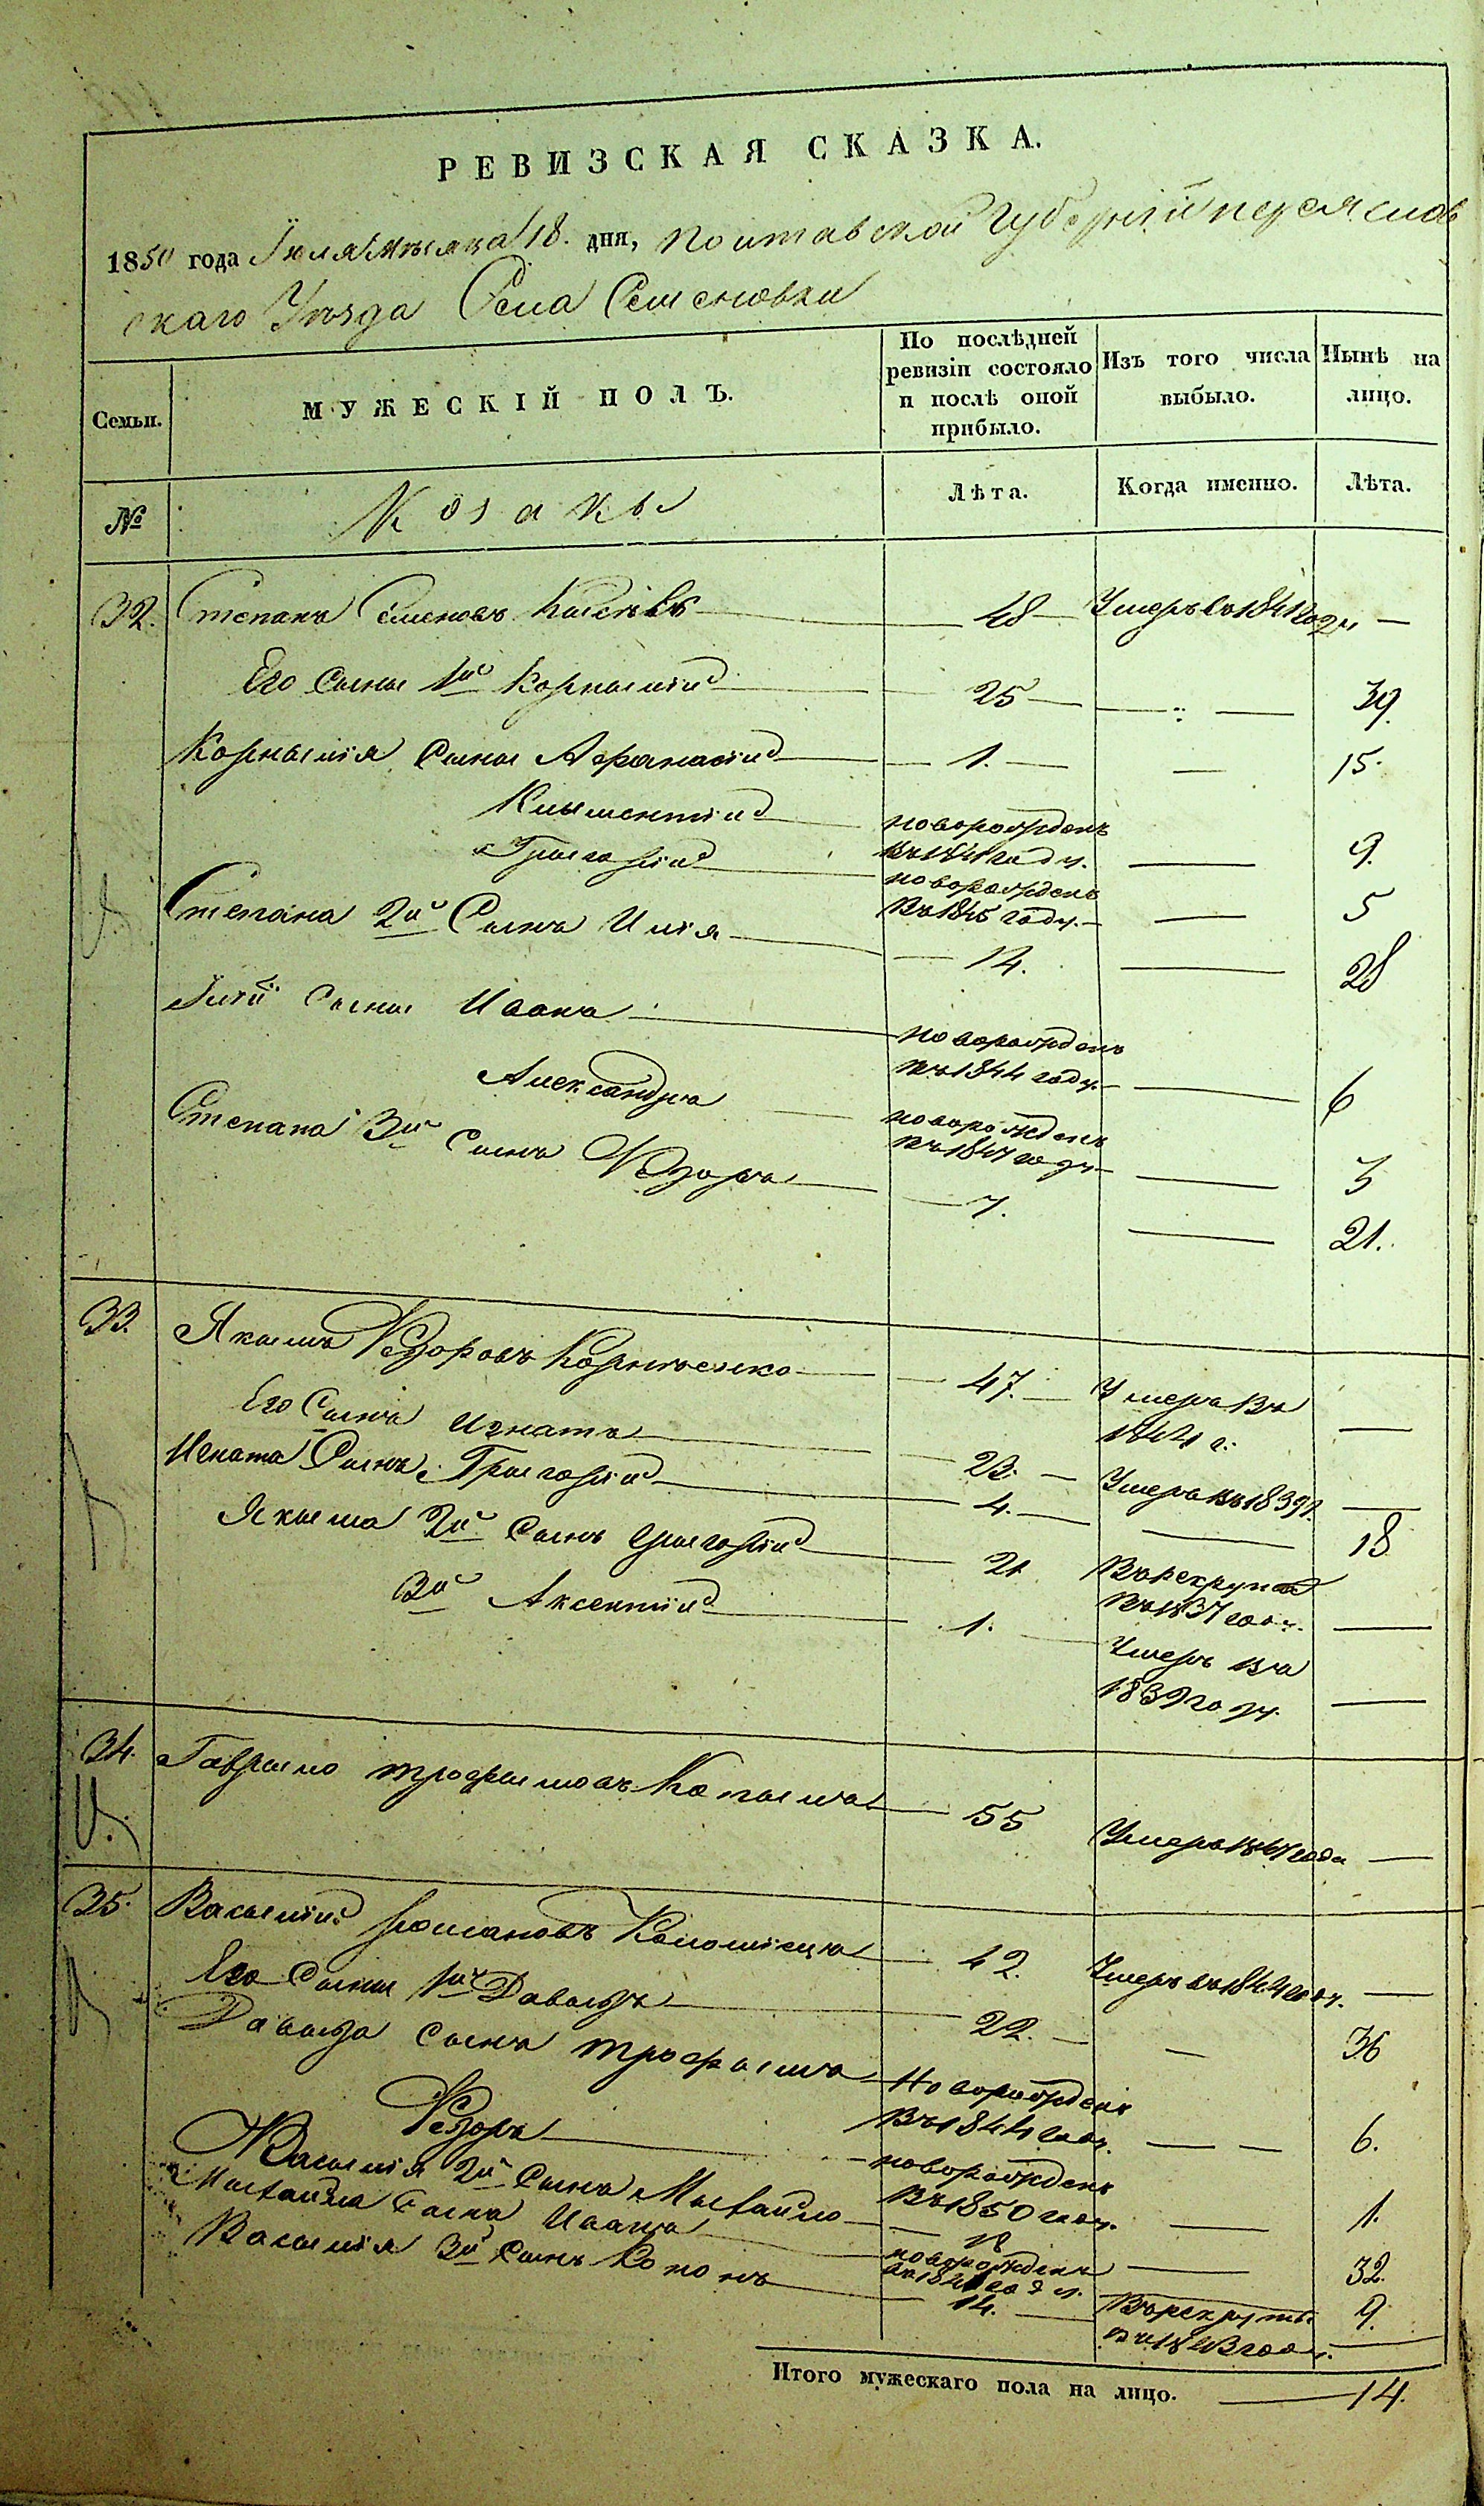 РЕВИЗСКАЯ СКАЗКА.
1850 года Іюля Мѣсяца 18. дня, Полтавской Губерніи переяслов
скаго Уѣзда Села Семеновки
Семьи.
МУЖЕСКІЙ ПОЛЪ.
По послѣдней ревизіи состояло и послѣ оной прибыло.
Изъ того числа выбыло.
Нынѣ на лицо.
№
Козакы
Лѣта.
Когда именно.
Лѣта.
32. Степанъ Семеновъ 48 Умеръ въ 1841 году —
Его Сыны 1й Корнылій 25 — 39.
Корнылія Сыны Афанасій 1. — 15.
Клыментій новорожденъ въ 1841 году. — 9.
Грыгорій новорожденъ въ 1845 году. — 5
Степана 2й Сынъ Илія 14. — 28
Іліи Сыны Иванъ новорожденъ въ 1844 году — 6
Александръ новорожденъ въ 1847 году — 3
Степана 3й Сынъ Федоръ 7. — 21.
33. Якымъ Федоровъ Корніенко 47. Умеръ въ 1844 г. —
Его Сынъ Игнатъ 23. Умеръ въ 1839 г. —
Игната Сынъ Грыгорій 4. — 18
Якыма 2й Сынъ Грыгорій 21 Въ рекруты въ 1837 году. —
3й Аксентій 1. Умеръ въ 1839 году. —
34. Гаврыло Трофымовъ 55 Умеръ 1847 года —
35. Васылій Романовъ Коломіецъ 42. Умеръ въ 1844 году. —
Его Сыны 1й Давыдъ 22. — 36
Давыда Сынъ Трофымъ Новорожденъ въ 1844 году. — 6.
Федоръ новорожденъ въ 1850 году. — 1.
Васылія 2й Сынъ Мыхайло 18 — 32.
Мыхайла Сынъ Иванъ новорожденъ въ 1841 году. — 9.
Васылія 3й Сынъ Кононъ 14. Въ рекруты въ 1843 году. —
Итого мужескаго пола на лицо. — 14.